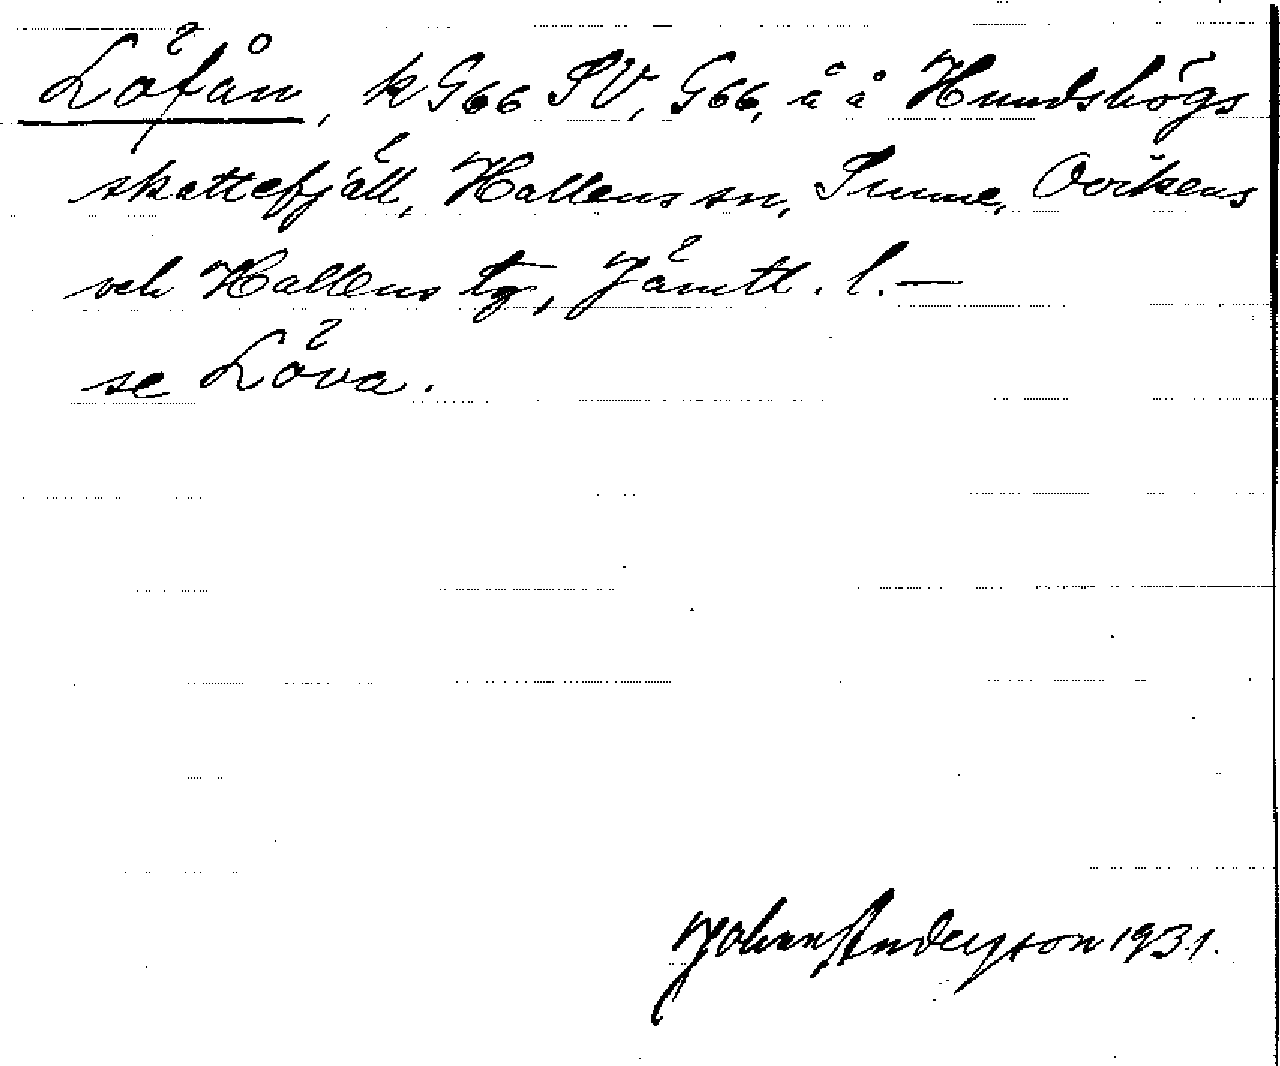 Löfån, k G66 SV, G66, å å Hundshögs
skattefjäll, Hallens sn, Sunne, Ovikens
och Hallens tg, Jämtl. l. —
se Löva.
Johan Anderson 1931.